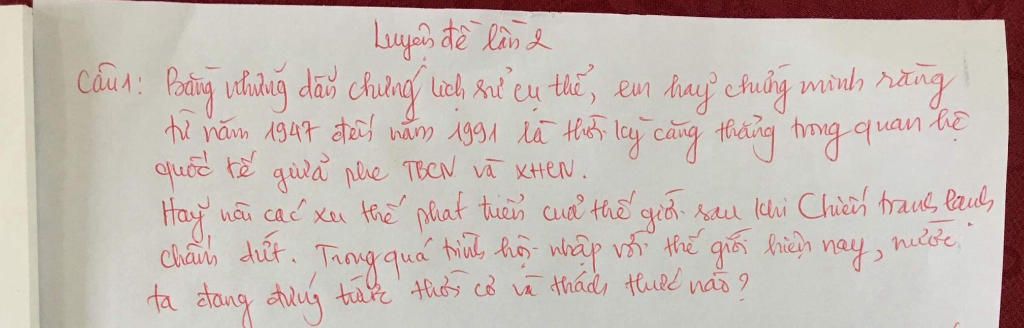 Luyện đề lần 2
Câu 1: Bằng những dẫn chứng lịch sử cụ thể, em hãy chứng minh rằng
từ năm 1947 đến năm 1991 là thời kỳ căng thẳng trong quan hệ
quốc tế giữa phe TBCN và XHCN.
Hãy nêu các xu thế phát triển của thế giới sau khi Chiến tranh lạnh
chấm dứt. Trong quá trình hội nhập với thế giới hiện nay, nước
ta đang đứng trước thời cơ và thách thức nào?